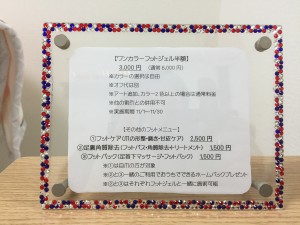 【ワンカラーフットジェル半額】
3,000円 (通常6,000円)
※カラーの選択は自由
※オフ代は別
※アート追加、カラー2色以上の場合は通常料金
※他の割引との併用不可
※実施期間 11/1〜11/30
【その他のフットメニュー】
①フットケア(爪の形整・磨き・甘皮ケア) 2,500円
②足裏角質除去(フットバス・角質除去・トリートメント) 1,500円
③フットパック(足首下マッサージ・フットパック) 1,500円
※①は自爪の方が対象
※②と③一緒のご利用でおうちでできるホームパックプレゼント
※②と③はそれぞれフットジェルと一緒に施術可能